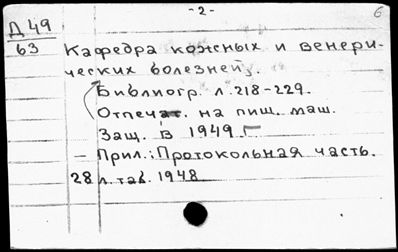 -2-
6
Д 49
63
Кафедра кожных и венери-
ческих болезней.
Библиогр. л. 218-229.
Отпечат. на пиш. маш.
Защ. в 1949 г
— Прил.: Протокольная часть.
28 л. таб. 1948